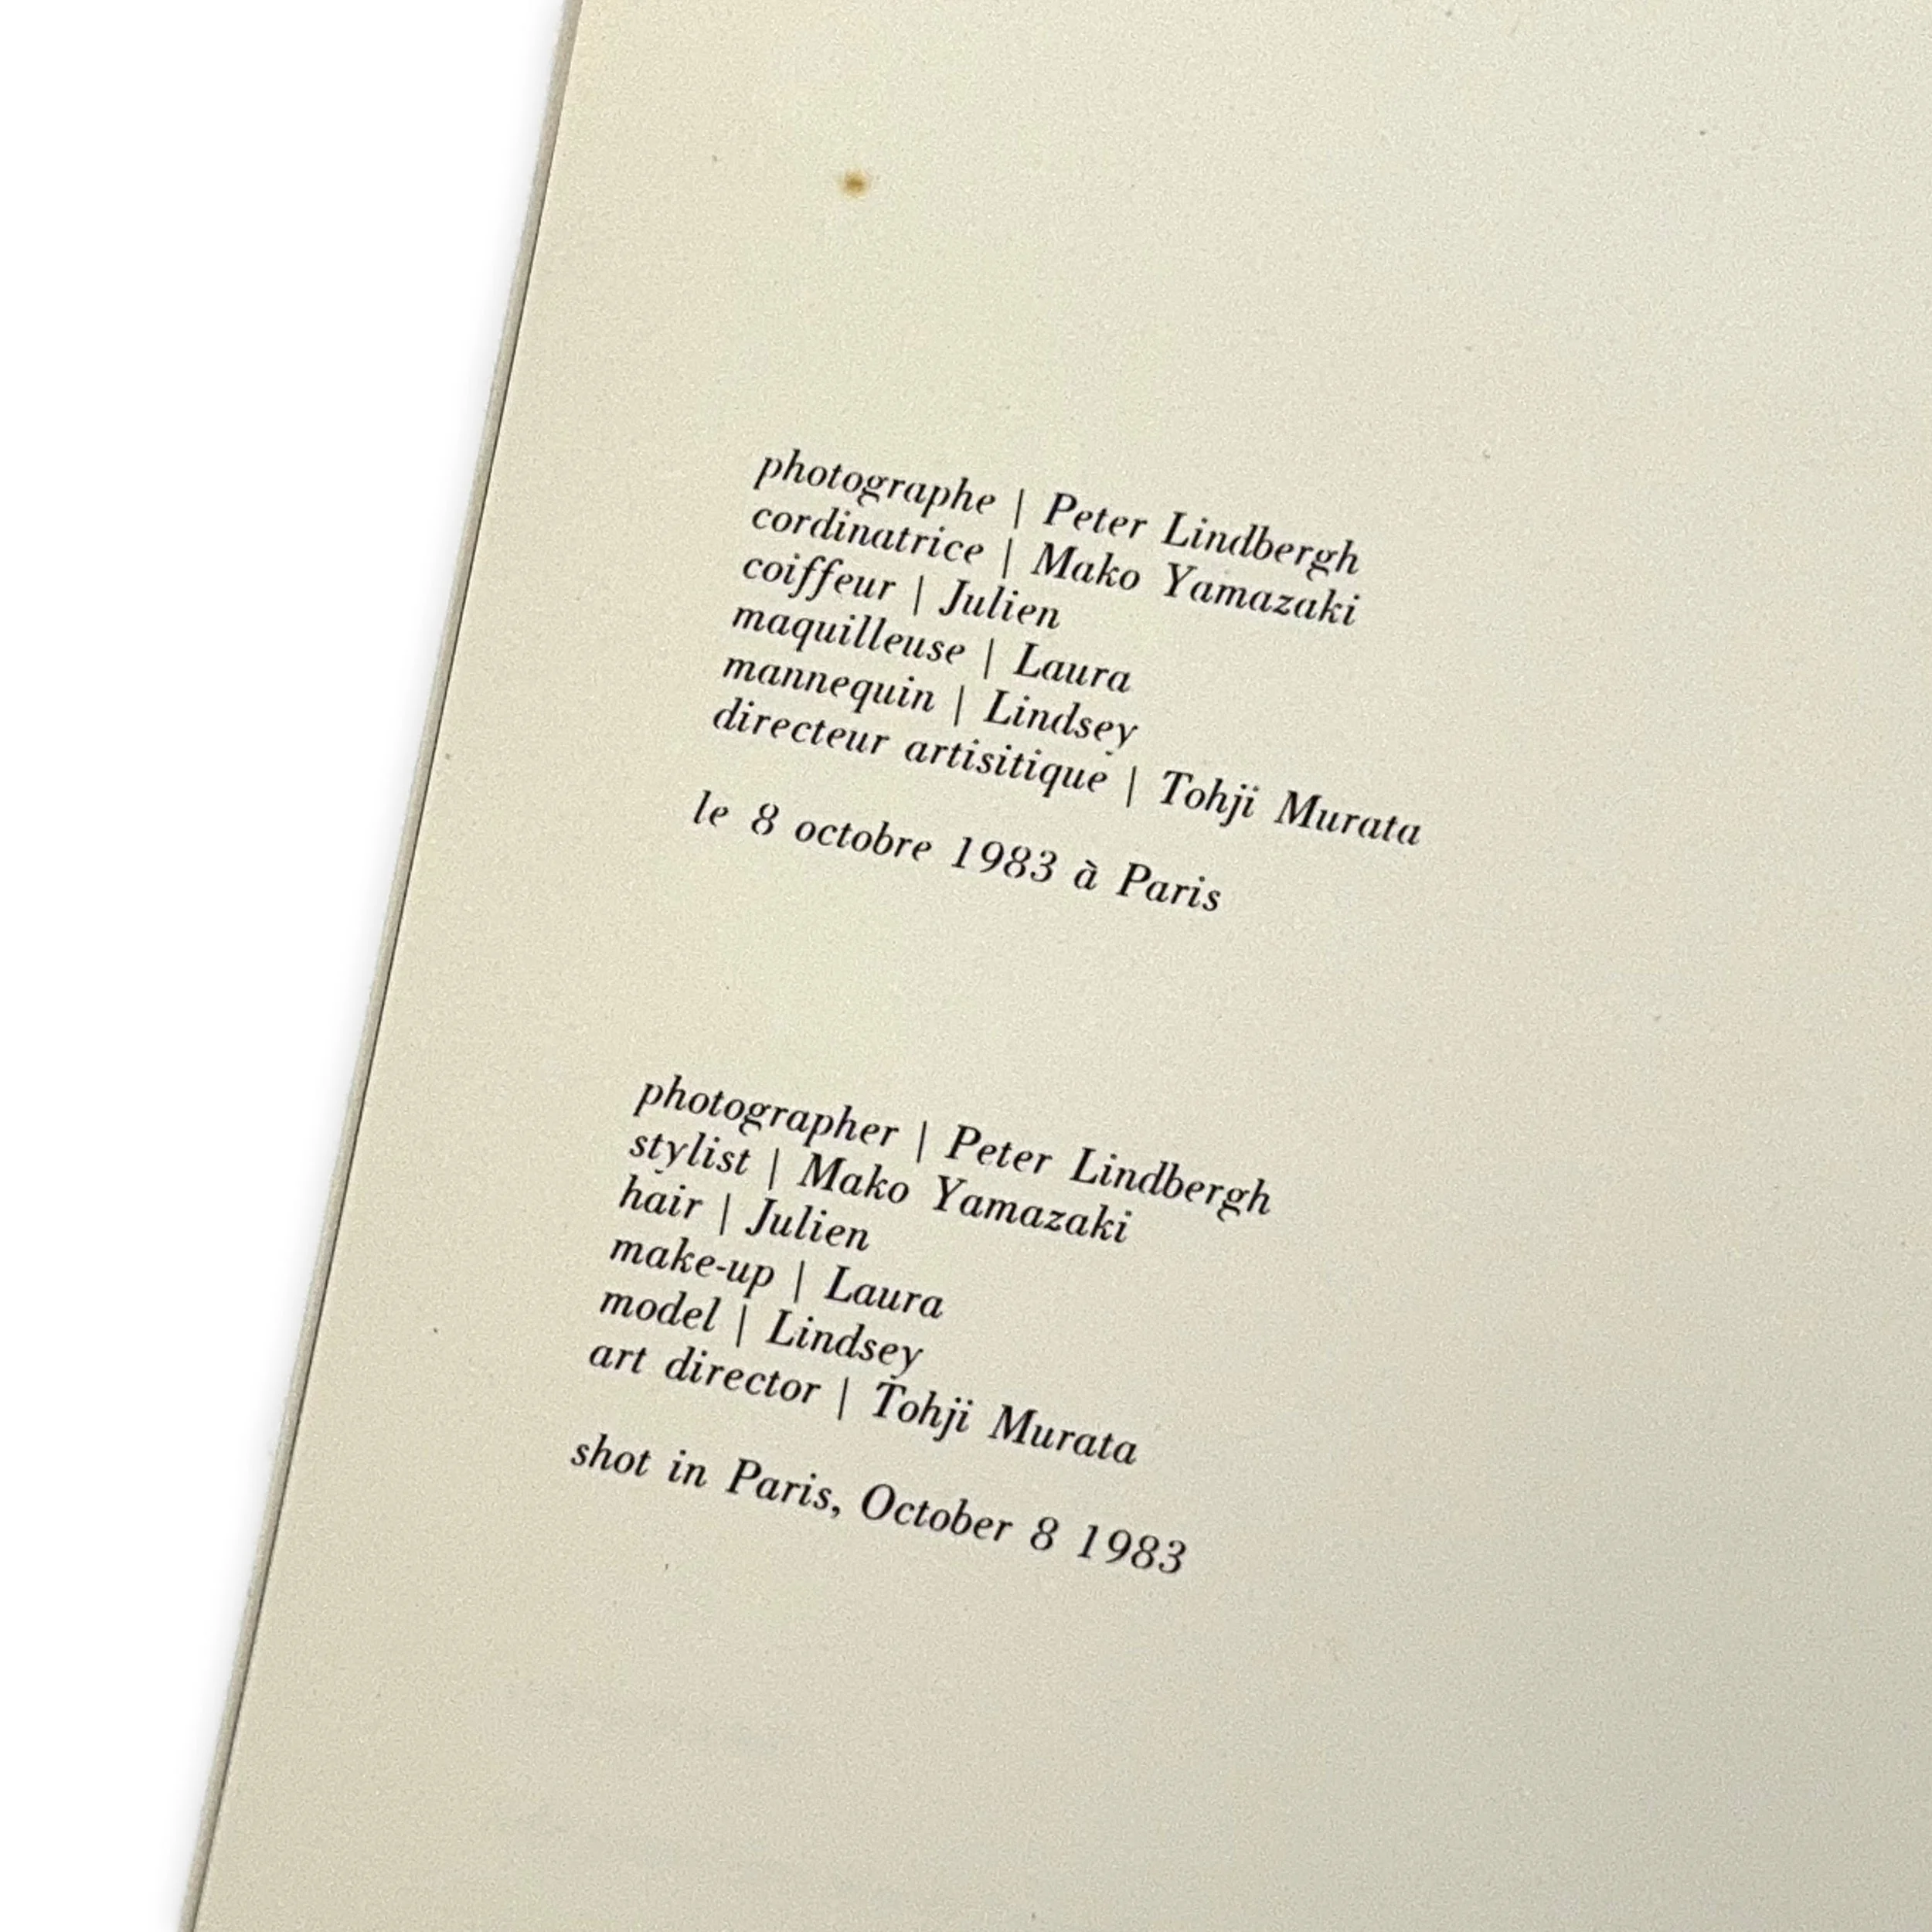 photographe | Peter Lindbergh
cordinatrice | Mako Yamazaki
coiffeur | Julien
maquilleuse | Laura
mannequin | Lindsey
directeur artisitique | Tohji Murata
le 8 octobre 1983 à Paris
photographer | Peter Lindbergh
stylist | Mako Yamazaki
hair | Julien
make-up | Laura
model | Lindsey
art director | Tohji Murata
shot in Paris, October 8 1983